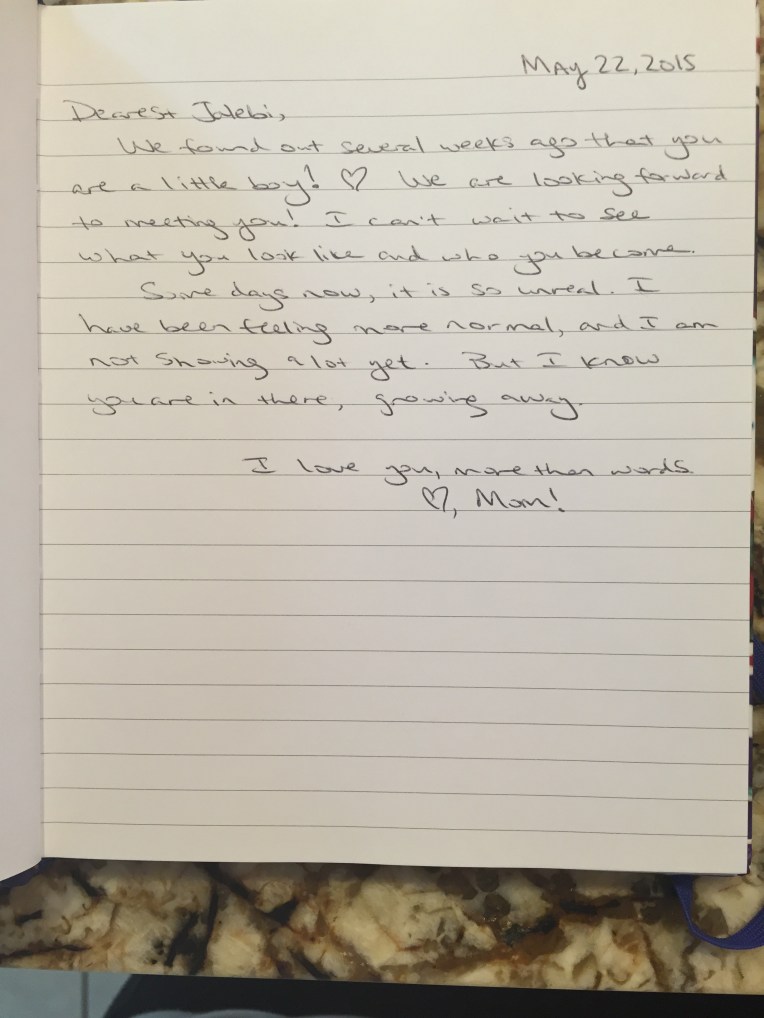 May 22, 2015
Dearest Jalebi,
We found out several weeks ago that you
are a little boy! ♡ We are looking forward
to meeting you! I can't wait to see
what you look like and who you become.
Some days now, it is so unreal. I
have been feeling more normal, and I am
not showing a lot yet. But I know
you are in there, growing away.
I love you, more than words.
♡, Mom!